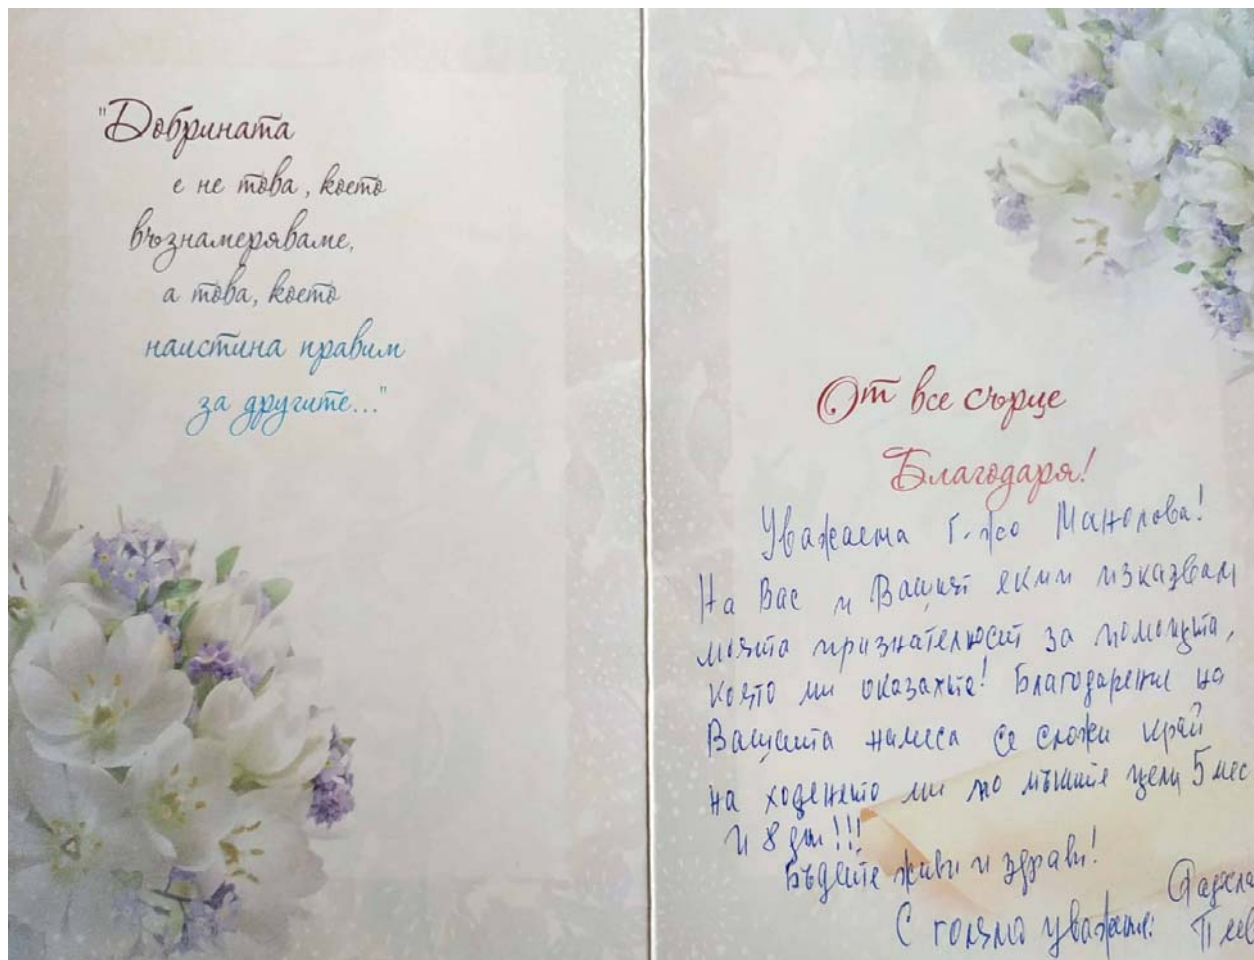 "Добрината
е не това, което
възнамеряваме,
а това, което
наистина правим
за другите..."
От все сърце
Благодаря!
Уважаема Г-жо Манолова!
На Вас и Вашият екип изказвам
моята признателност за помощта,
която ми оказахте! Благодарение на
Вашата намеса се сложи край
на ходенето ми по мъките цели 5 мес
и 8 дни!!!
Бъдете живи и здрави!
С голямо уважение: